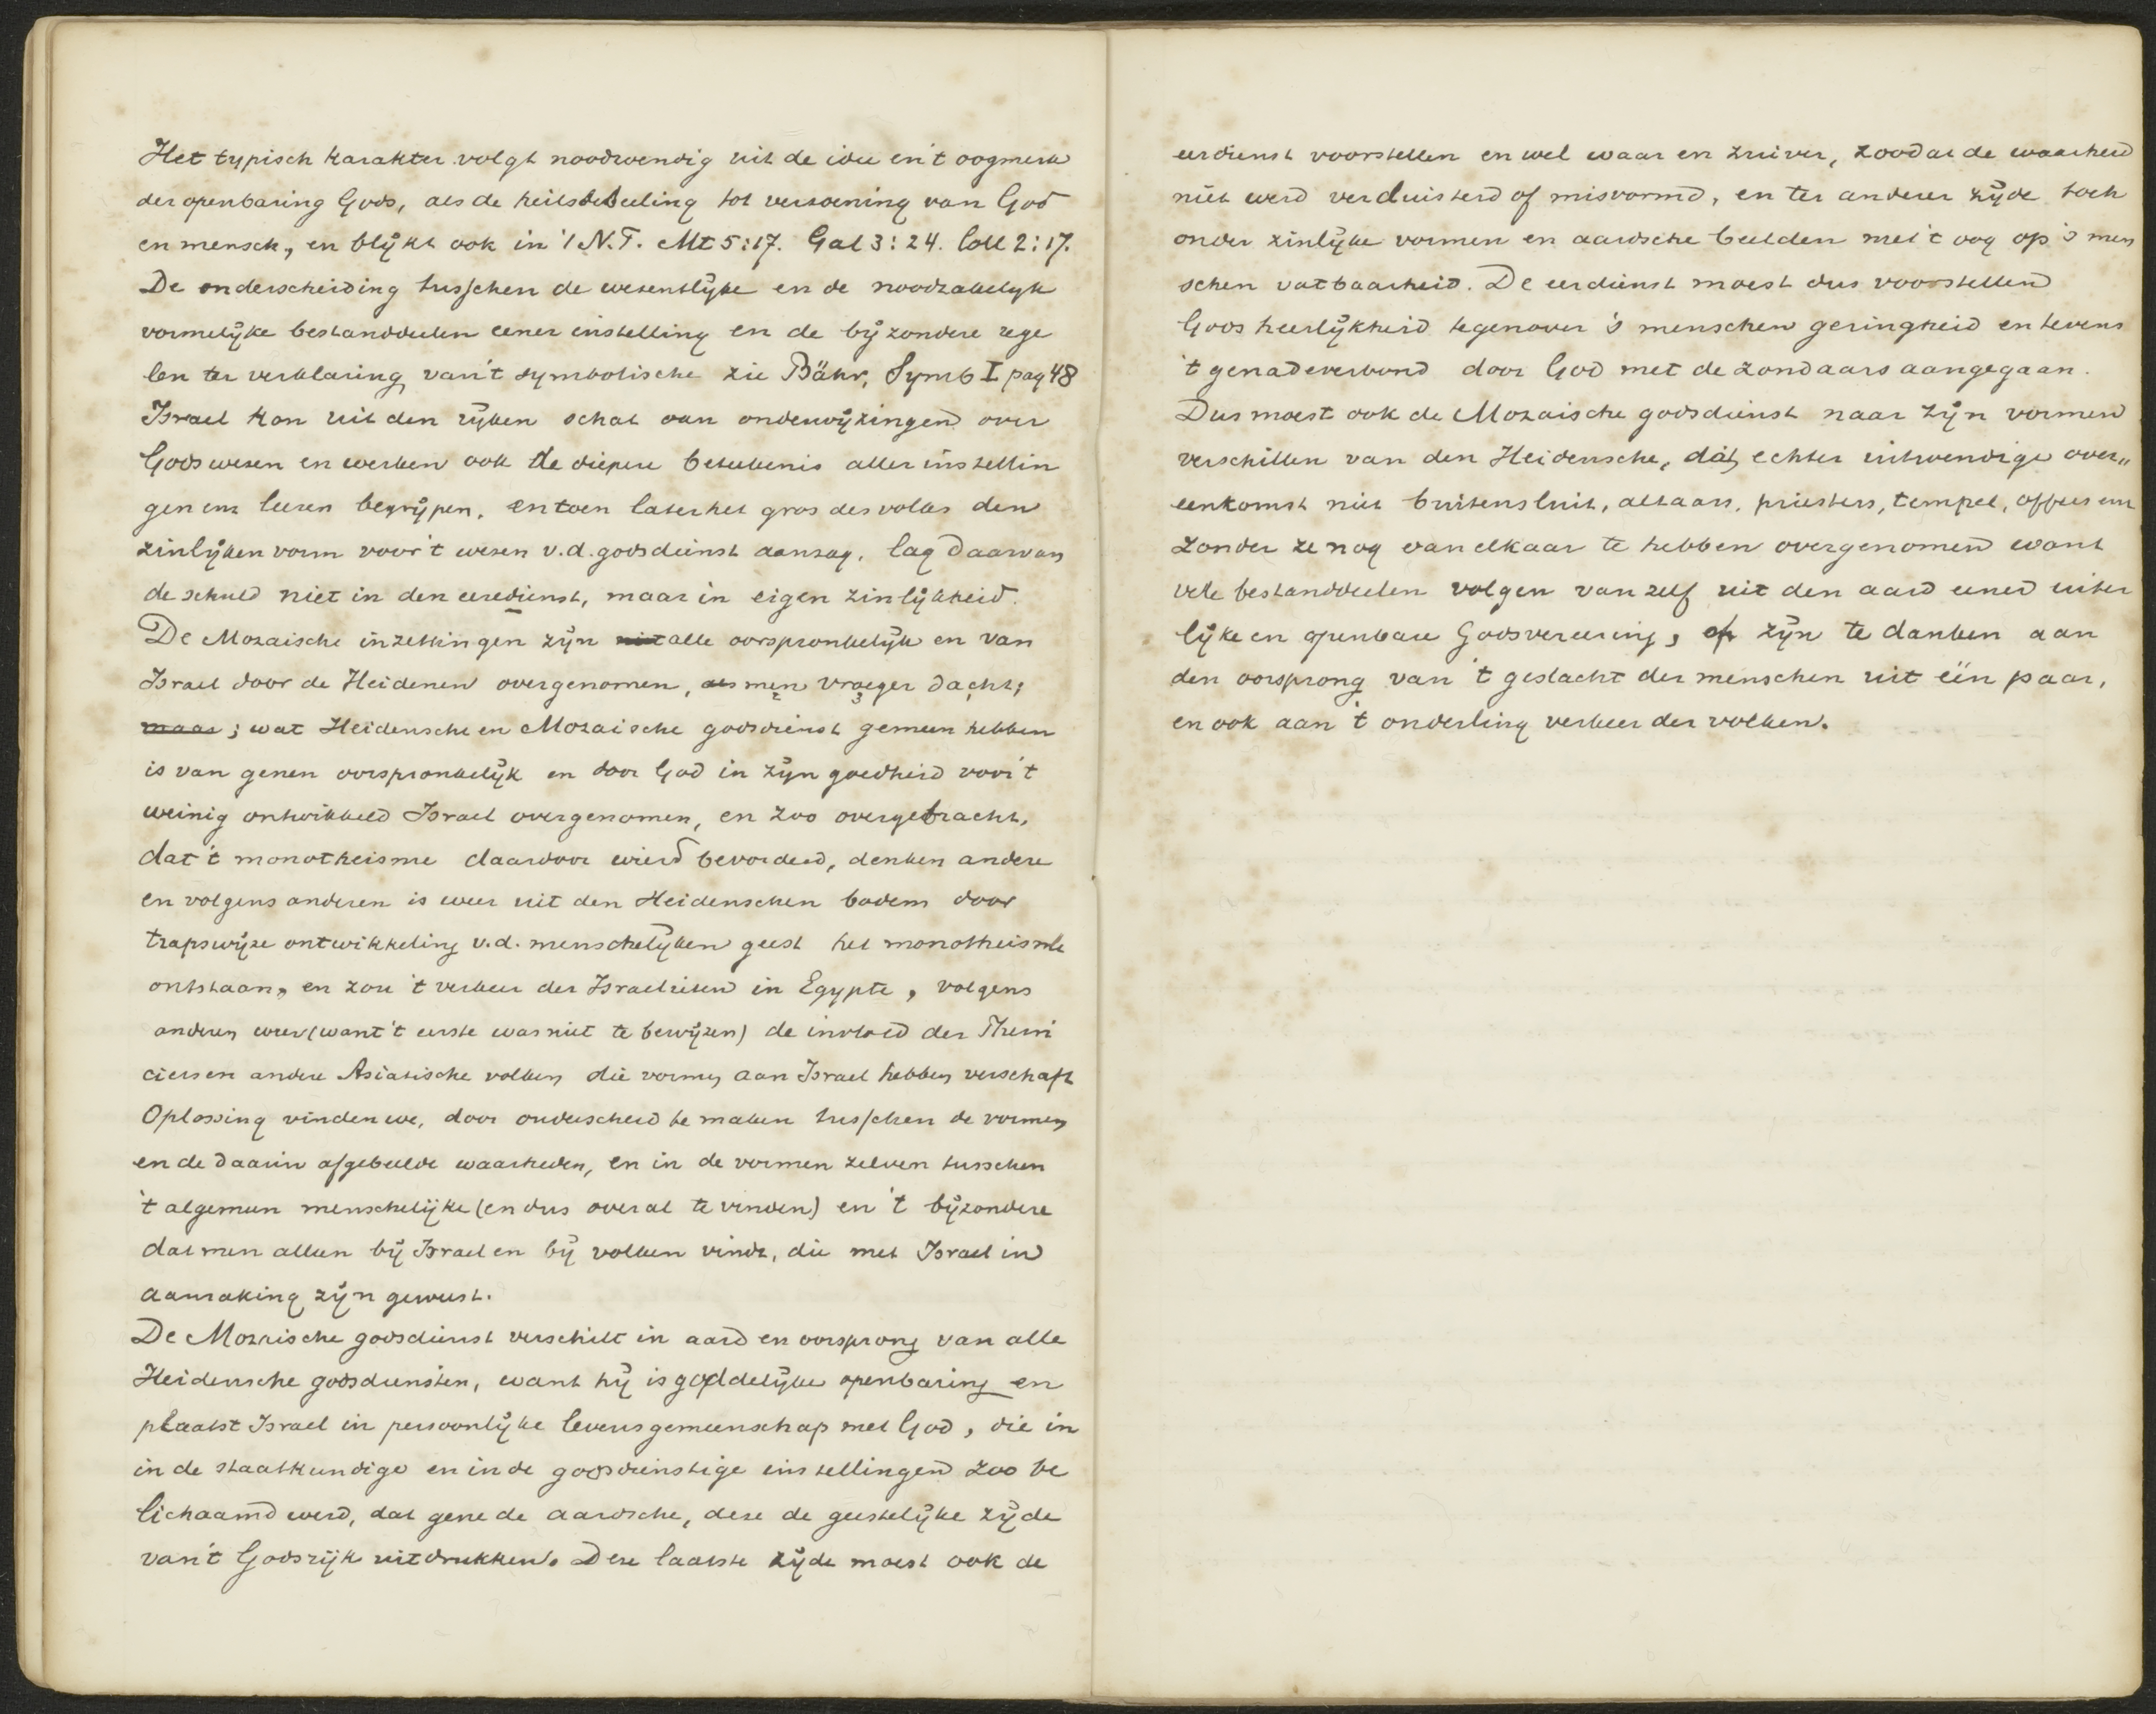 Het typisch karakter volgt noodwendig uit de idee en 't oogmerk
der openbaring Gods, als de heilsbedeeling tot verzoening van God
en mensch, en blijkt ook in 't N.T. Mt 5:17. Gal 3:24. Coll 2:17.
De onderscheiding tusschen de wesentlijke en de noodzakelijk
vormelijke bestanddeelen eener instelling en de bijzondere rege
len ter verklaring van 't symbolische zie Bähr, Symb I pag 48
Israel kon uit den rijken schat van onderwijzingen over
Gods wesen en werken ook de diepere beteekenis aller instellin
gen enz leeren begrijpen, en toen later het gros des volks den
zinlijken vorm voor 't wesen v.d. godsdienst aanzag, lag daarvan
de schuld niet in den eeredienst, maar in eigen zinlijkheid.
De Mozaische inzettingen zijn niet alle oorspronkelijk en van
Israel door de Heidenen overgenomen, als men vroeger dacht;
maar; wat Heidensche en Mozaische godsdienst gemeen hebben
is van genen oorspronkelijk en door God in zijn goedheid voor 't
weinig ontwikkeld Israel overgenomen, en zoo overgebracht,
dat 't monotheisme daardoor wierd bevorderd, denken andere
en volgens anderen is weer uit den Heidenschen bodem door
trapswijze ontwikkeling v.d. menschelijken geest het monotheisme
ontstaan, en zou 't verkeer der Israelieten in Egypte, volgens
anderen weer (want 't eerste was niet te bewijzen) de invloed der Pheni
ciers en andere Asiatische volken die vormen aan Israel hebben verschaft
Oplossing vinden we, door onderscheid te maken tusschen de vormen
en de daarin afgebeelde waarheden, en in de vormen zelven tusschen
't algemeen menschelijke (en dus overal te vinden) en 't bijzondere
dat men alleen bij Israel en bij volken vindt, die met Israel in
aanraking zijn geweest.
De Mozaische godsdienst verschilt in aard en oorsprong van alle
Heidensche godsdiensten, want hij is goddelijke openbaring en
plaatst Israel in persoonlijke levensgemeenschap met God, die in
in de staatkundige en in de godsdienstige instellingen zoo be
lichaamd werd, dat gene de aardsche, deze de geestelijke zijde
van 't Godsrijk uitdrukken. Deze laatste zijde moest ook de
eerdienst voorstellen en wel waar en zuiver, zoodat de waarheid
niet werd verduisterd of misvormd, en ter anderer zijde toch
onder zinlijke vormen en aardsche beelden met 't oog op 's men
schen vatbaarheid. De eerdienst moest dus voorstellen
Gods heerlijkheid tegenover 's menschen geringheid en tevens
't genadeverbond door God met de zondaars aangegaan.
Dus moest ook de Mozaische godsdienst naar zijn vormen
verschillen van den Heidensche, dat echter uitwendige over„
eenkomst niet buitensluit, altaars, priesters, tempel, offers enz
zonder ze nog van elkaar te hebben overgenomen want
vele bestanddeelen volgen van zelf uit den aard eener uiter
lijke en openbare Godsvereering, of zijn te danken aan
den oorsprong van 't geslacht der menschen uit één paar,
en ook aan 't onderling verkeer der volken.